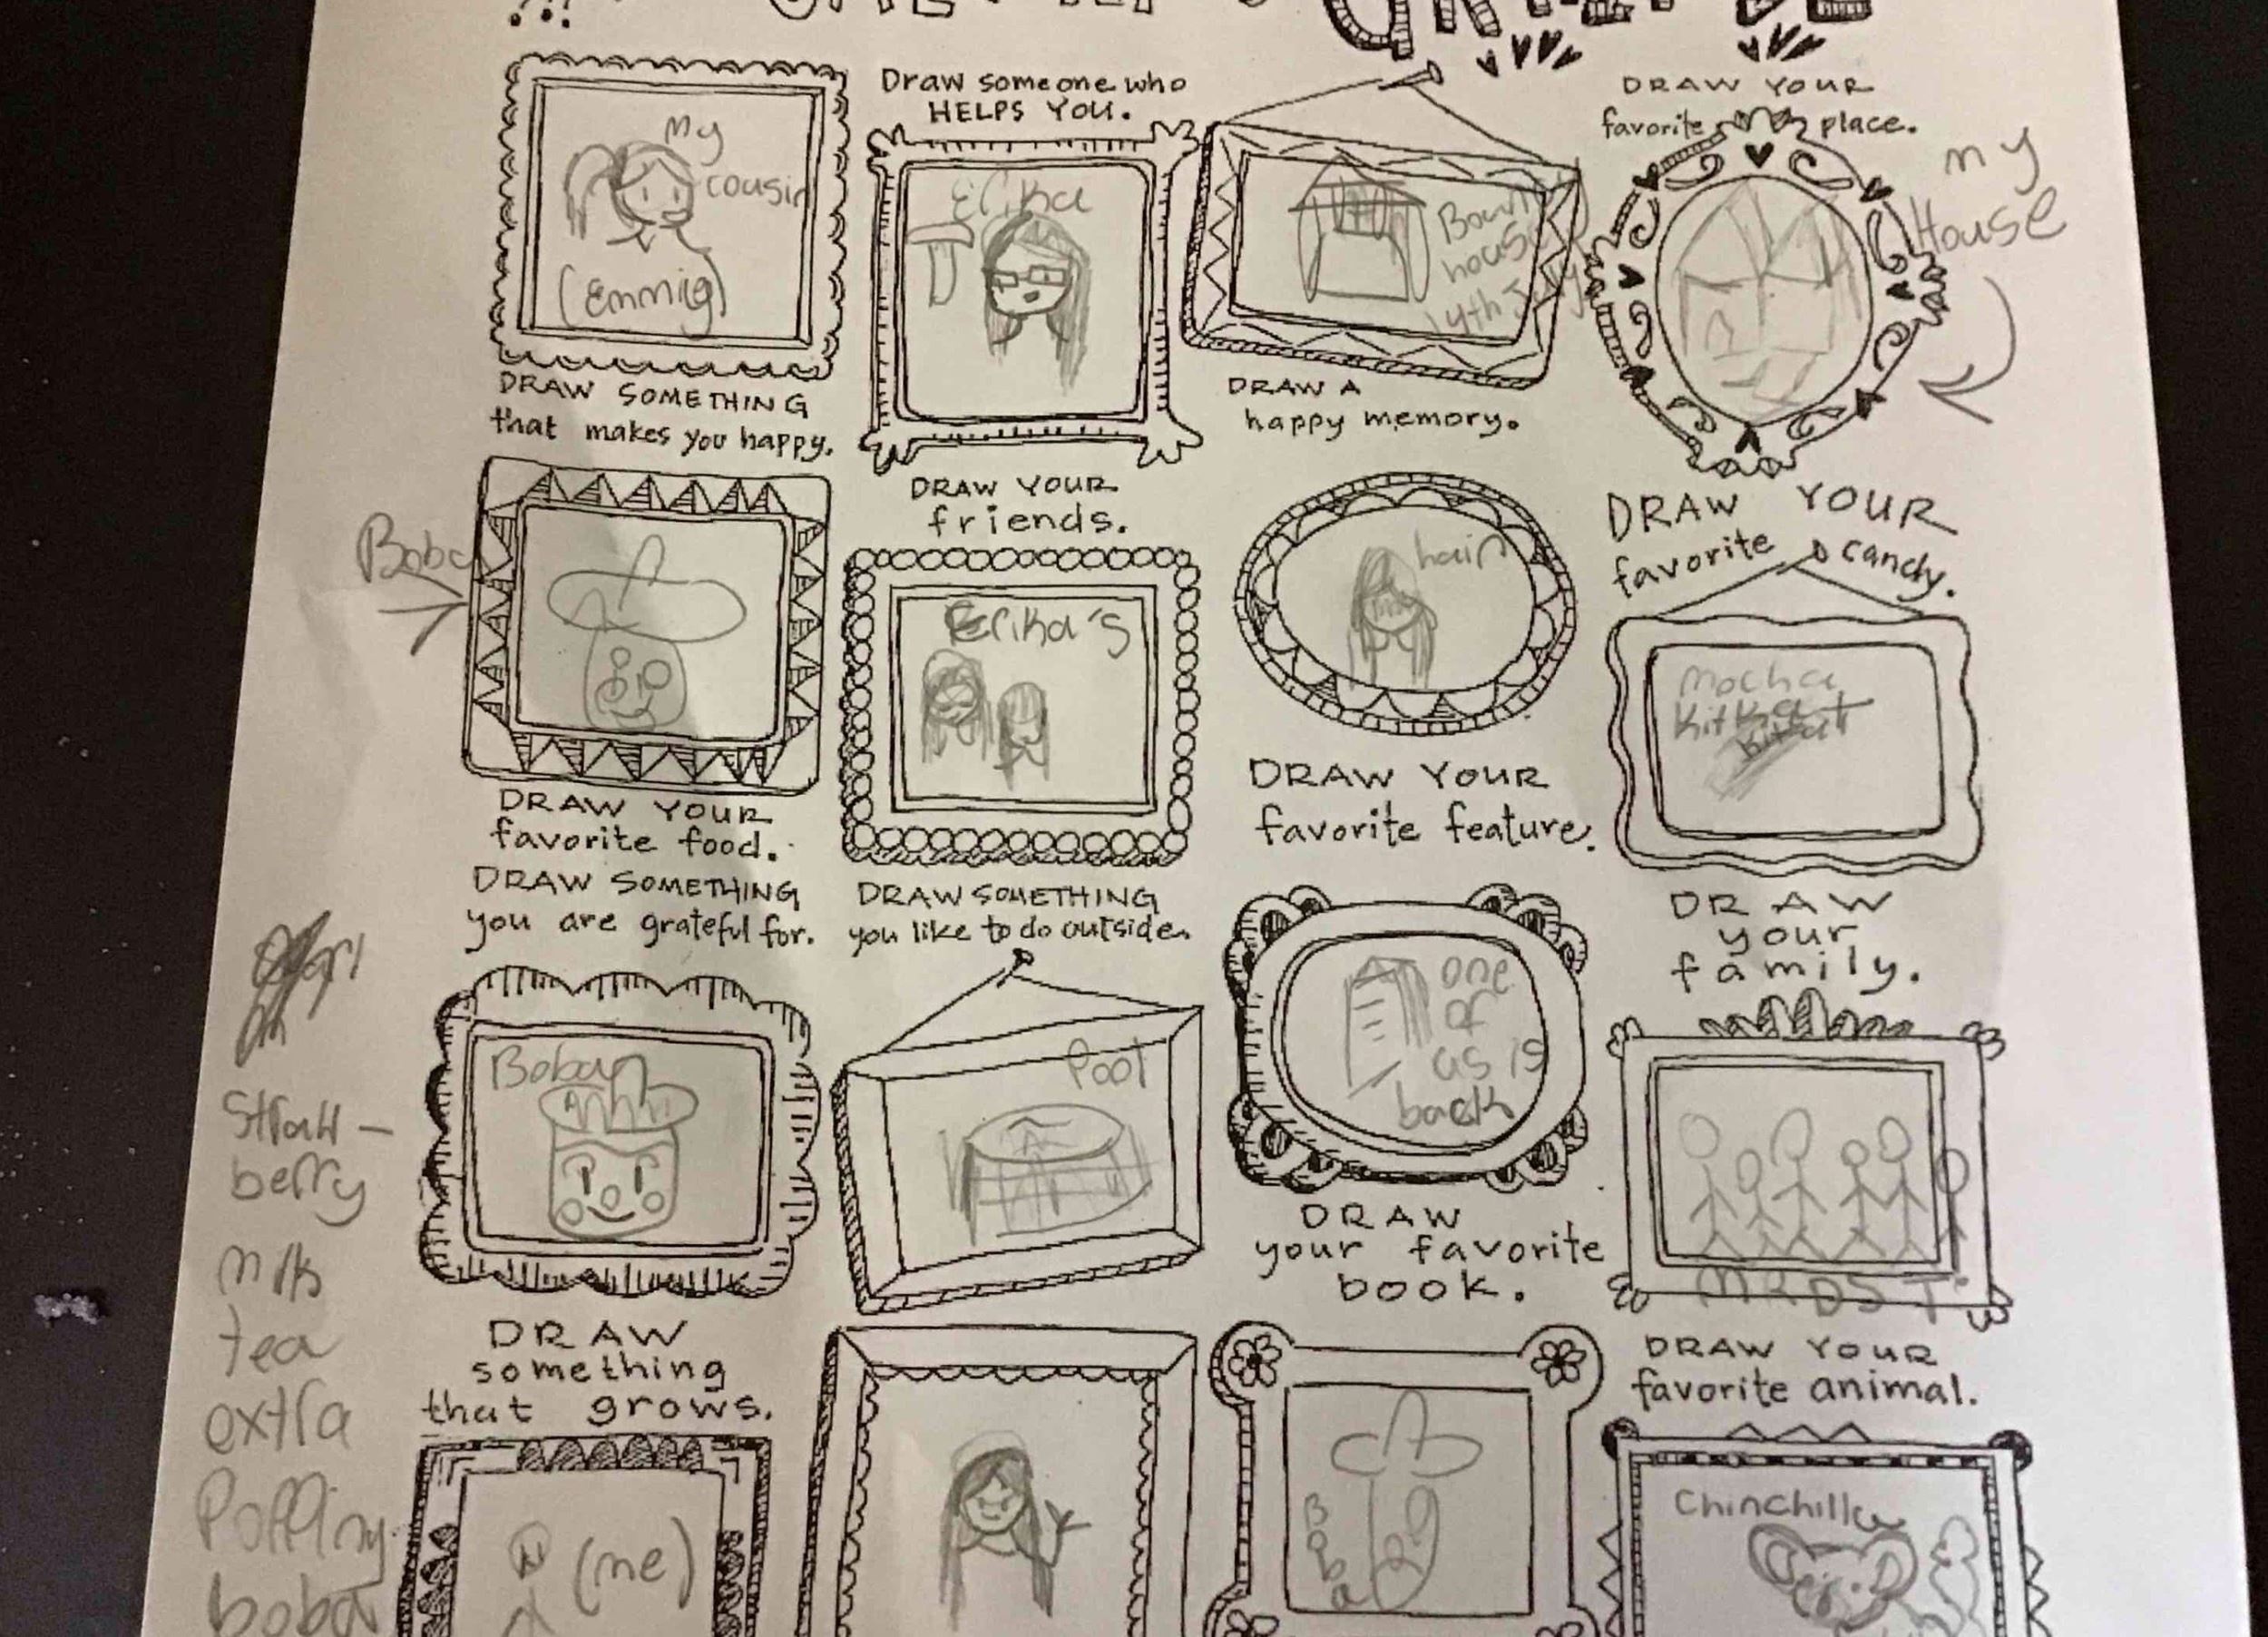 my
cousin
(Emmig)
DRAW SOMETHING
that makes you happy.
Draw someone who
HELPS YOU.
Erika
house
14th July
DRAW A
happy memory.
DRAW YOUR
favorite place.
my
House
Boba
DRAW YOUR
favorite food.
DRAW YOUR
friends.
Erika's
hair
DRAW YOUR
favorite feature.
DRAW YOUR
favorite candy.
Mocha
KitKat
Kitkat
DRAW SOMETHING
you are grateful for.
Boba
DRAW SOMETHING
you like to do outside.
Pool
one
of
us is
back
DRAW
your favorite
book.
DRAW
your
family.
MRDST
Straw-
berry
milk
tea
extra
Popping
boba
DRAW
something
that grows.
(me)
Boba
DRAW YOUR
favorite animal.
Chinchilla